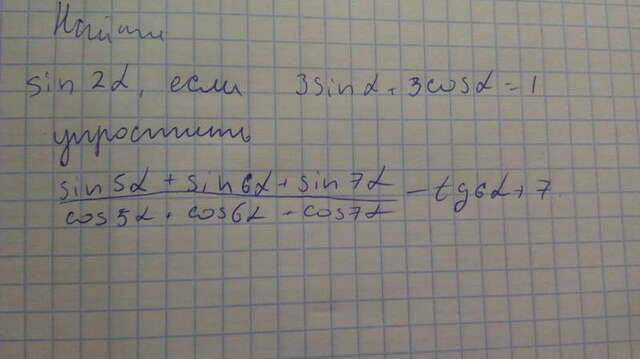 Найти
sin 2α, если 3sinα + 3cosα = 1
упростить
sin5α + sin6α + sin7α
cos5α + cos6α + cos7α - tg6α + 7